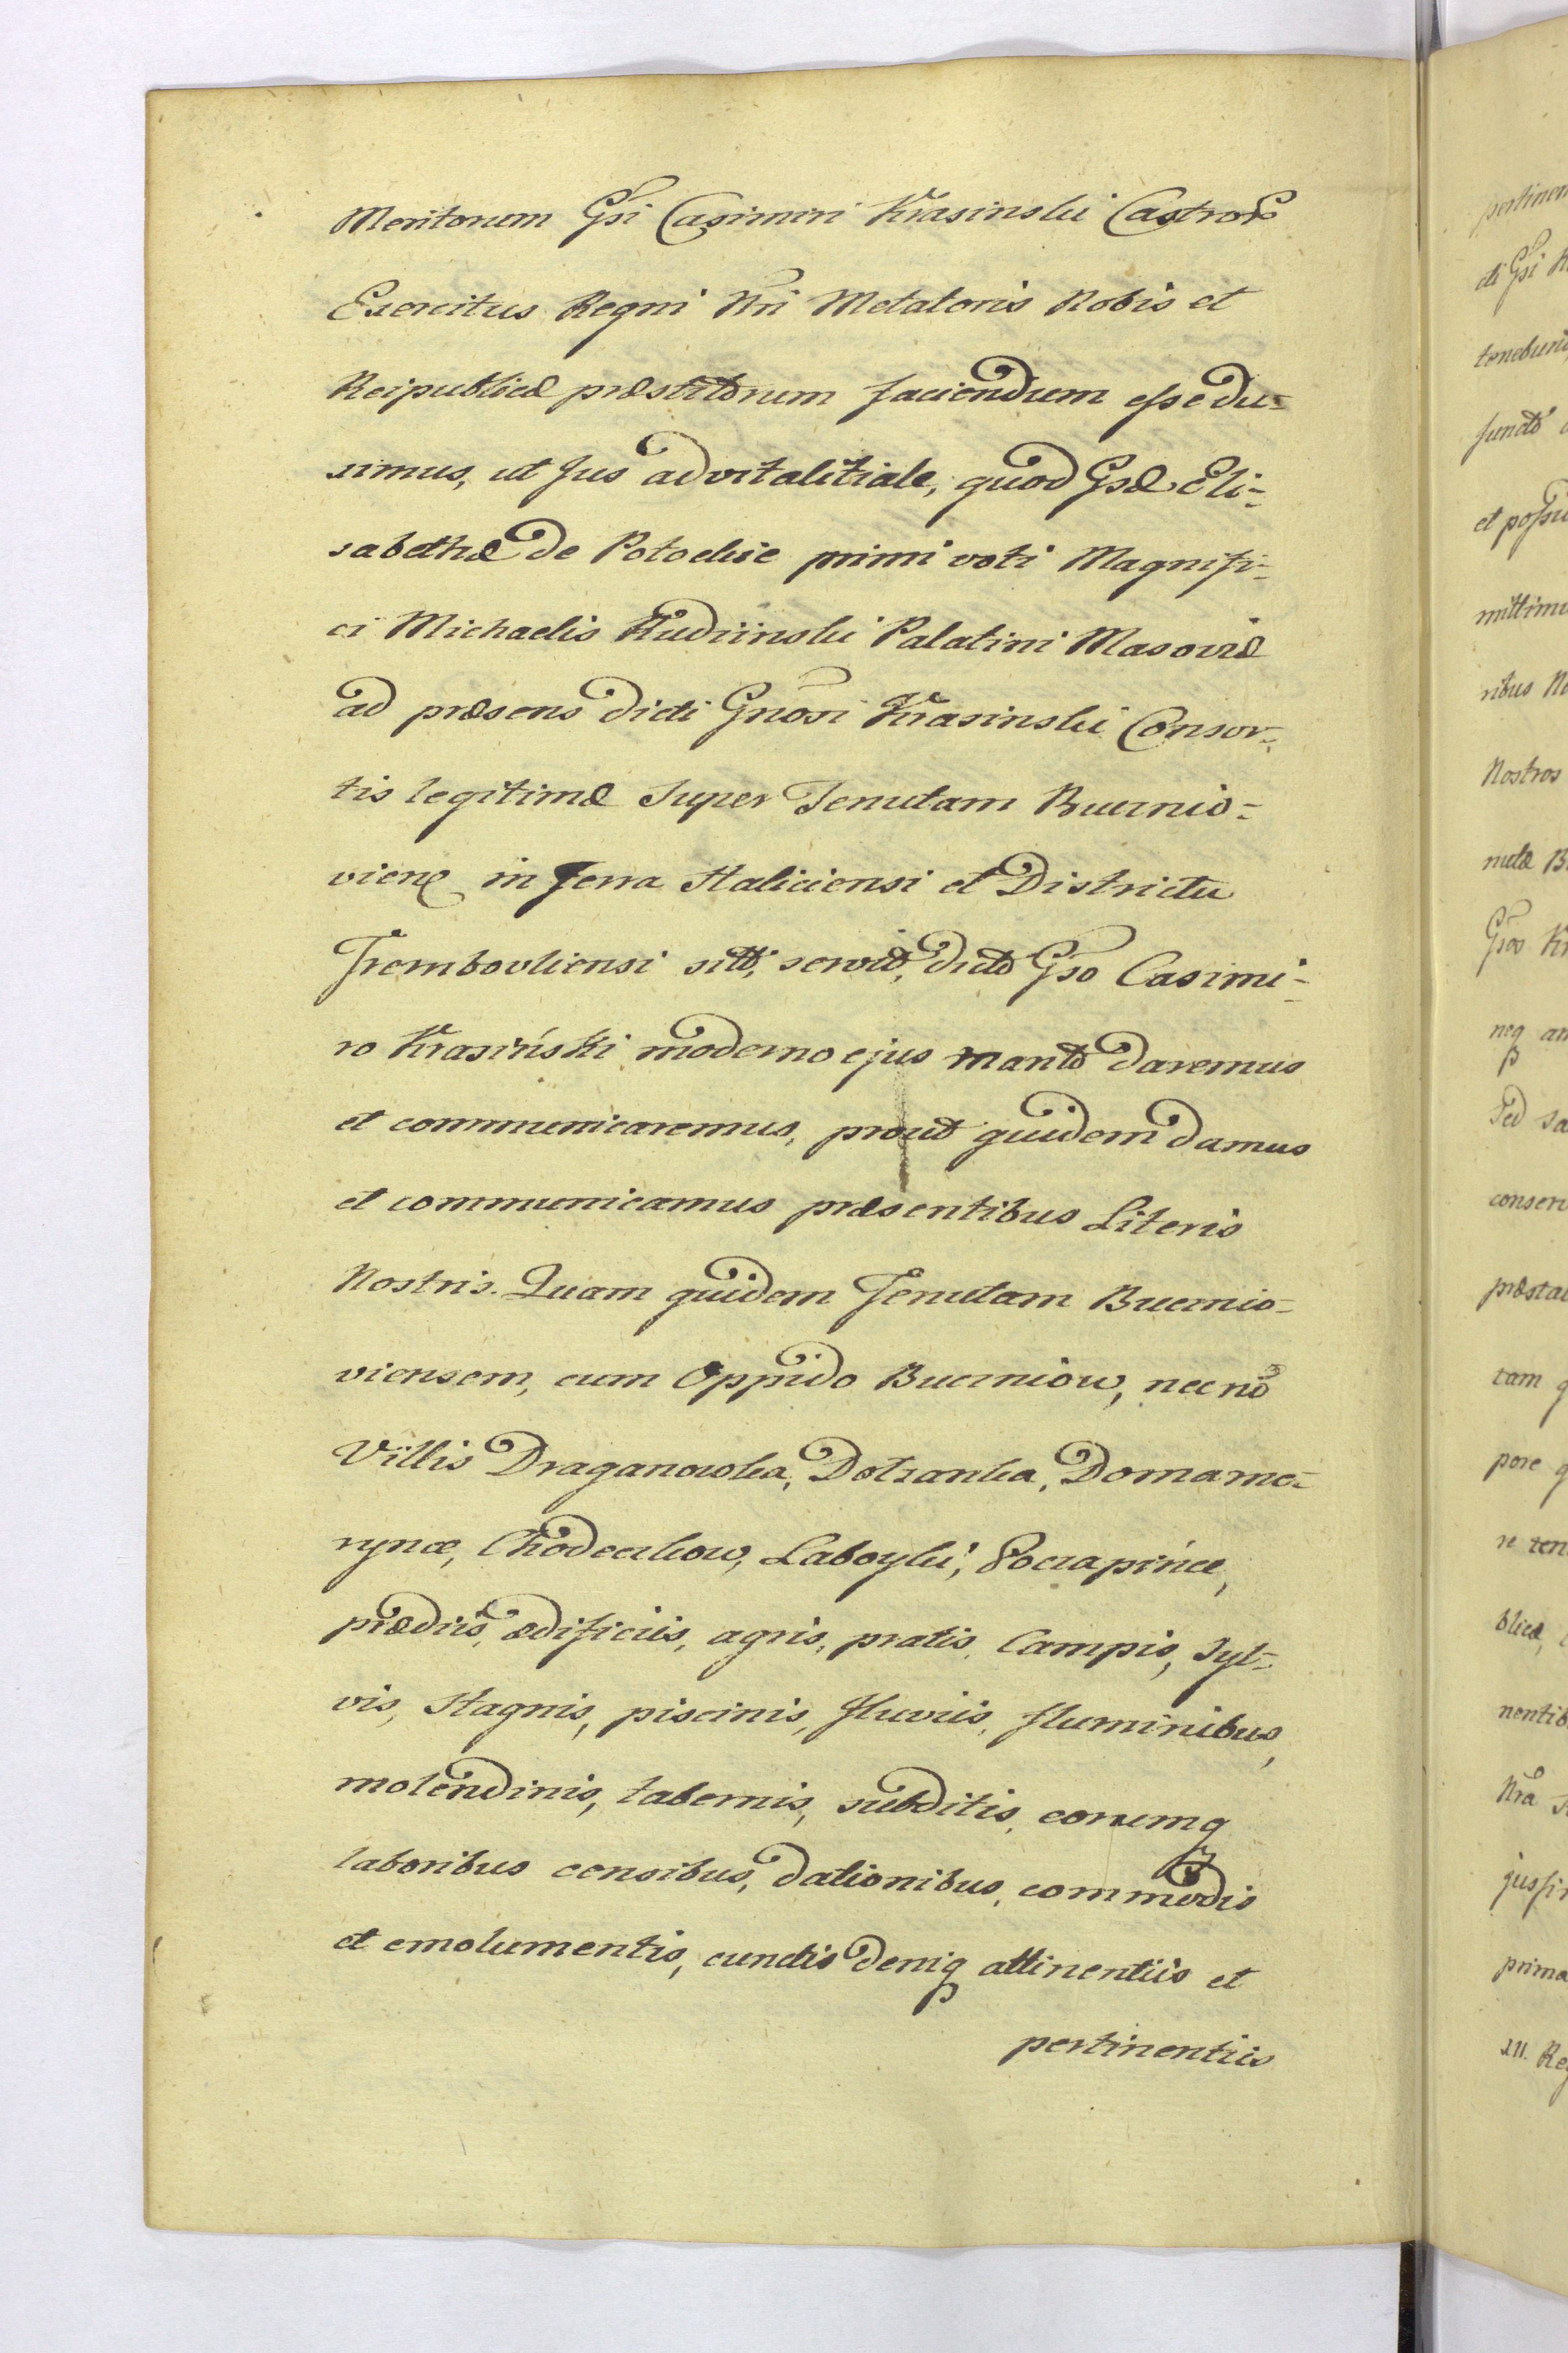 Meritorum Gsi Casimiri Krasinski Castror
Exercitus Regni Nri Metatoris Nobis et
Reipublicæ præstitorum faciendum esse du=
ximus, ut Jus advitalitiale, quod Gsæ Eli=
sabethæ de Potockie primi voti Magnifi=
ci Michaelis Rudzinski Palatini Masoviæ
ad præsens dicti Gnosi Krasinski Consor=
tis legitimæ super Tenutam Bucznio=
viens in Terra Haliciensi et Districtu
Trembovliensi sitt, servit, dicto Gso Casimi=
ro Krasiński moderno ejus marito daremus
et communicaremus, prout quidem damus
et communicamus præsentibus Literis
Nostris. Quam quidem Tenutam Bucznio=
viensem, cum Oppido Buczniow, nec nō
Villis Draganowka, Dotzanka, Domamo=
rycze, Chodeczkow, Laboyki, Poczapińce,
prædiis, ædificiis, agris, pratis, Campis, Syl=
vis, Stagnis, piscinis, fluviis, fluminibus,
molendinis, tabernis, subditis, eorumq
laboribus censibus, dationibus, commodis
et emolumentis, cunctis deniq attinentiis et
pertinentiis
pertinen
di Gsi K
tenebun
functo
et possu
mittimu
ribus No
Nostros
nutæ B
Gsos Kr
neq am
Sed sa
conserv
præsta
tam q
pore q
re ten
blicæ,
nentib
Nra
jussi
prima
III. Re